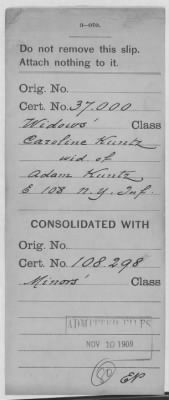 3—070.
Do not remove this slip.
Attach nothing to it.
Orig. No.
Cert. No. 37.000
Widows' Class
Caroline Kuntz
wid. of
Adam Kuntz
E 108 N.Y. Inf.
CONSOLIDATED WITH
Orig. No.
Cert. No. 108.298
Minors' Class
ADMITTED FILES
NOV 10 1909
EP